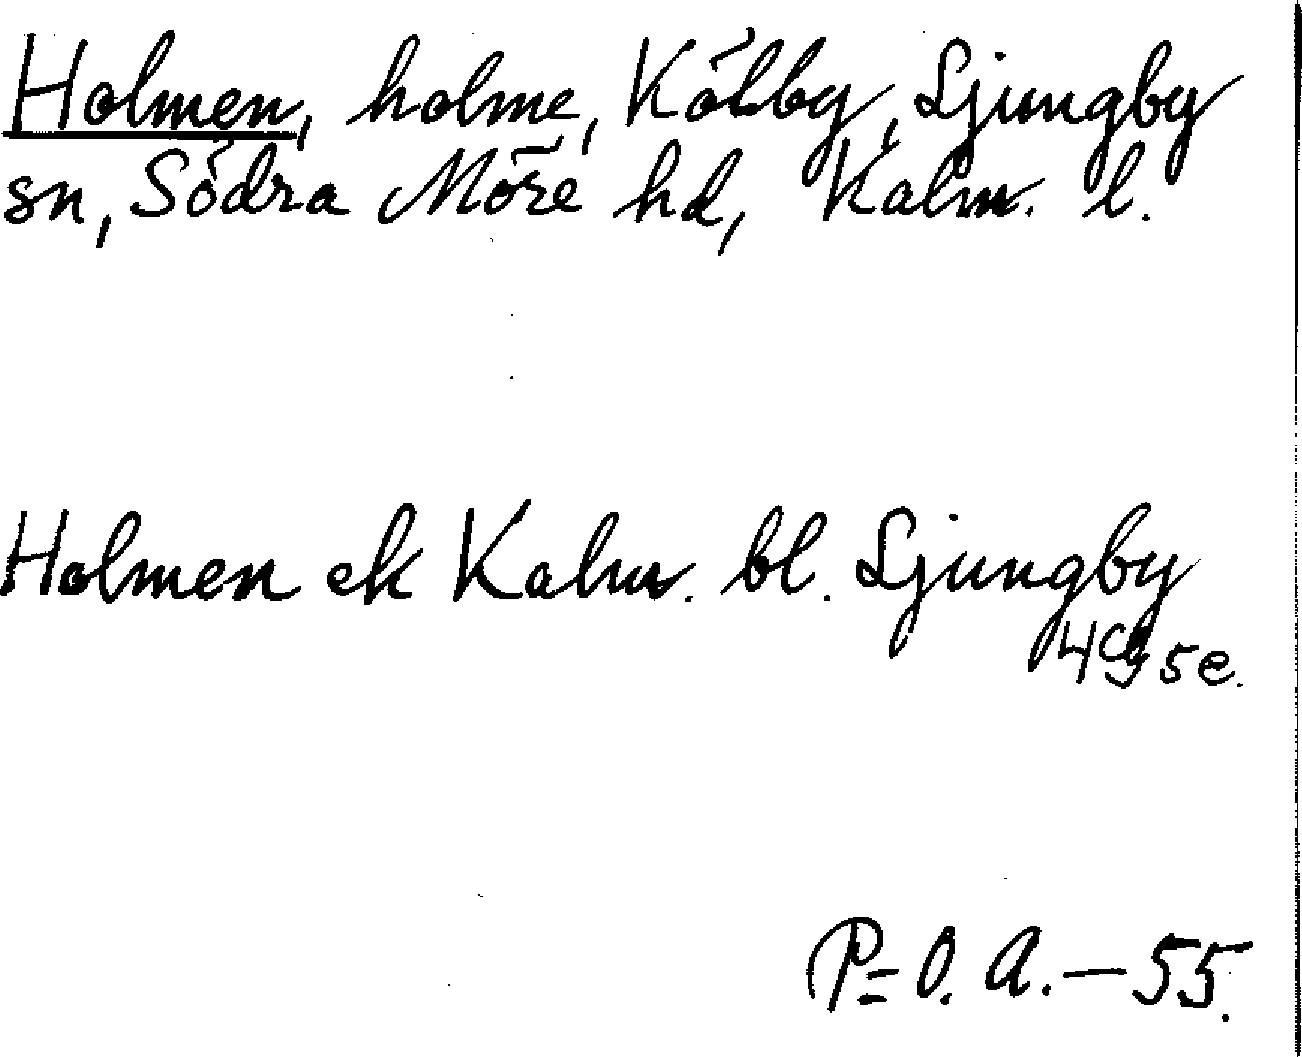 Holmen, holme, Kölby, Ljungby
sn, Södra Möre hd, Kalm. l.
Holmen ek Kalm. bl. Ljungby
4G5e.
P=O. A. — 55.